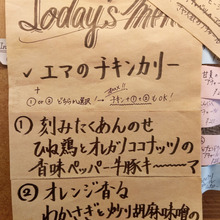 Today's menu
✓ エマのチキンカリー
+
① or ② どちらか選択!
チキン+①+②もOK!
① 刻みたくあんのせ
ひね鶏とオレガノココナッツの
香味ペッパー牛豚キーーマ
② オレンジ香る
わかさぎと炒り胡麻味噌の